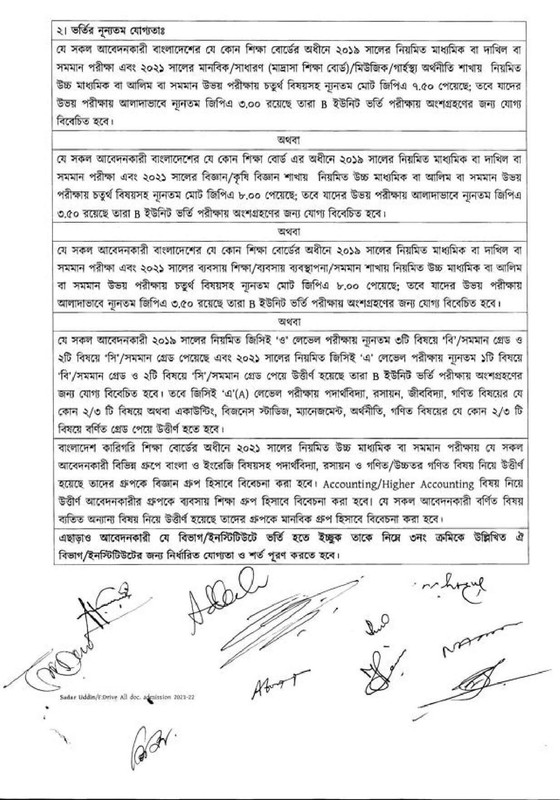 ২। ভর্তির নূন্যতম যোগ্যতাঃ
যে সকল আবেদনকারী বাংলাদেশের যে কোন শিক্ষা বোর্ডের অধীনে ২০১৯ সালের নিয়মিত মাধ্যমিক বা দাখিল বা
সমমান পরীক্ষা এবং ২০২১ সালের মানবিক/সাধারণ (মাদ্রাসা শিক্ষা বোর্ড)/মিউজিক/গার্হস্থ্য অর্থনীতি শাখায় নিয়মিত
উচ্চ মাধ্যমিক বা আলিম বা সমমান উভয় পরীক্ষায় চতুর্থ বিষয়সহ ন্যূনতম মোট জিপিএ ৭.৫০ পেয়েছে; তবে যাদের
উভয় পরীক্ষায় আলাদাভাবে ন্যূনতম জিপিএ ৩.০০ রয়েছে তারা B ইউনিট ভর্তি পরীক্ষায় অংশগ্রহণের জন্য যোগ্য
বিবেচিত হবে।
অথবা
যে সকল আবেদনকারী বাংলাদেশের যে কোন শিক্ষা বোর্ড এর অধীনে ২০১৯ সালের নিয়মিত মাধ্যমিক বা দাখিল বা
সমমান পরীক্ষা এবং ২০২১ সালের বিজ্ঞান/কৃষি বিজ্ঞান শাখায় নিয়মিত উচ্চ মাধ্যমিক বা আলিম বা সমমান উভয়
পরীক্ষায় চতুর্থ বিষয়সহ ন্যূনতম মোট জিপিএ ৮.০০ পেয়েছে; তবে যাদের উভয় পরীক্ষায় আলাদাভাবে ন্যূনতম জিপিএ
৩.৫০ রয়েছে তারা B ইউনিট ভর্তি পরীক্ষায় অংশগ্রহণের জন্য যোগ্য বিবেচিত হবে।
অথবা
যে সকল আবেদনকারী বাংলাদেশের যে কোন শিক্ষা বোর্ডের অধীনে ২০১৯ সালের নিয়মিত মাধ্যমিক বা দাখিল বা
সমমান পরীক্ষা এবং ২০২১ সালের ব্যবসায় শিক্ষা/ব্যবসায় ব্যবস্থাপনা/সমমান শাখায় নিয়মিত উচ্চ মাধ্যমিক বা আলিম
বা সমমান উভয় পরীক্ষায় চতুর্থ বিষয়সহ ন্যূনতম মোট জিপিএ ৮.০০ পেয়েছে; তবে যাদের উভয় পরীক্ষায়
আলাদাভাবে ন্যূনতম জিপিএ ৩.৫০ রয়েছে তারা B ইউনিট ভর্তি পরীক্ষায় অংশগ্রহণের জন্য যোগ্য বিবেচিত হবে।
অথবা
যে সকল আবেদনকারী ২০১৯ সালের নিয়মিত জিসিই 'ও' লেভেল পরীক্ষায় ন্যূনতম ৩টি বিষয়ে 'বি'/সমমান গ্রেড ও
২টি বিষয়ে 'সি'/সমমান গ্রেড পেয়েছে এবং ২০২১ সালের নিয়মিত জিসিই 'এ' লেভেল পরীক্ষায় ন্যূনতম ১টি বিষয়ে
'বি'/সমমান গ্রেড ও ২টি বিষয়ে 'সি'/সমমান গ্রেড পেয়ে উত্তীর্ণ হয়েছে তারা B ইউনিট ভর্তি পরীক্ষায় অংশগ্রহণের
জন্য যোগ্য বিবেচিত হবে। তবে জিসিই 'এ'(A) লেভেল পরীক্ষায় পদার্থবিদ্যা, রসায়ন, জীববিদ্যা, গণিত বিষয়ের যে
কোন ২/৩ টি বিষয়ে অথবা একাউন্টিং, বিজনেস স্টাডিজ, ম্যানেজমেন্ট, অর্থনীতি, গণিত বিষয়ের যে কোন ২/৩ টি
বিষয়ে বর্ণিত গ্রেড পেয়ে উত্তীর্ণ হতে হবে।
বাংলাদেশ কারিগরি শিক্ষা বোর্ডের অধীনে ২০২১ সালের নিয়মিত উচ্চ মাধ্যমিক বা সমমান পরীক্ষায় যে সকল
আবেদনকারী বিভিন্ন গ্রুপে বাংলা ও ইংরেজি বিষয়সহ পদার্থবিদ্যা, রসায়ন ও গণিত/উচ্চতর গণিত বিষয় নিয়ে উত্তীর্ণ
হয়েছে তাদের গ্রুপকে বিজ্ঞান গ্রুপ হিসাবে বিবেচনা করা হবে। Accounting/Higher Accounting বিষয় নিয়ে
উত্তীর্ণ আবেদনকারীর গ্রুপকে ব্যবসায় শিক্ষা গ্রুপ হিসাবে বিবেচনা করা হবে। যে সকল আবেদনকারী বর্ণিত বিষয়
ব্যতিত অন্যান্য বিষয় নিয়ে উত্তীর্ণ হয়েছে তাদের গ্রুপকে মানবিক গ্রুপ হিসাবে বিবেচনা করা হবে।
এছাড়াও আবেদনকারী যে বিভাগ/ইনস্টিটিউটে ভর্তি হতে ইচ্ছুক তাকে নিম্নে ৩নং ক্রমিকে উল্লিখিত ঐ
বিভাগ/ইনস্টিটিউটের জন্য নির্ধারিত যোগ্যতা ও শর্ত পূরণ করতে হবে।
Sadar Uddin/F:Drive All doc. admission 2021-22